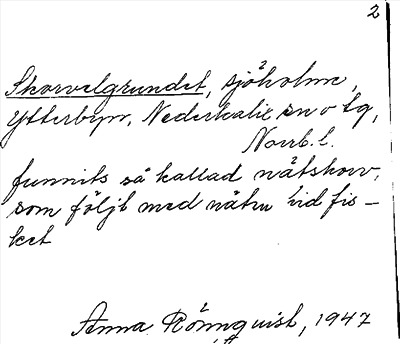 2
Skorvelgrundet, sjöholme,
Ytterbyn, Nederkalix sn o tg,
Norrb. l.
funnits så kallad nätskorv,
som följt med näten vid fis-
ket
Anna Rönnquist, 1947